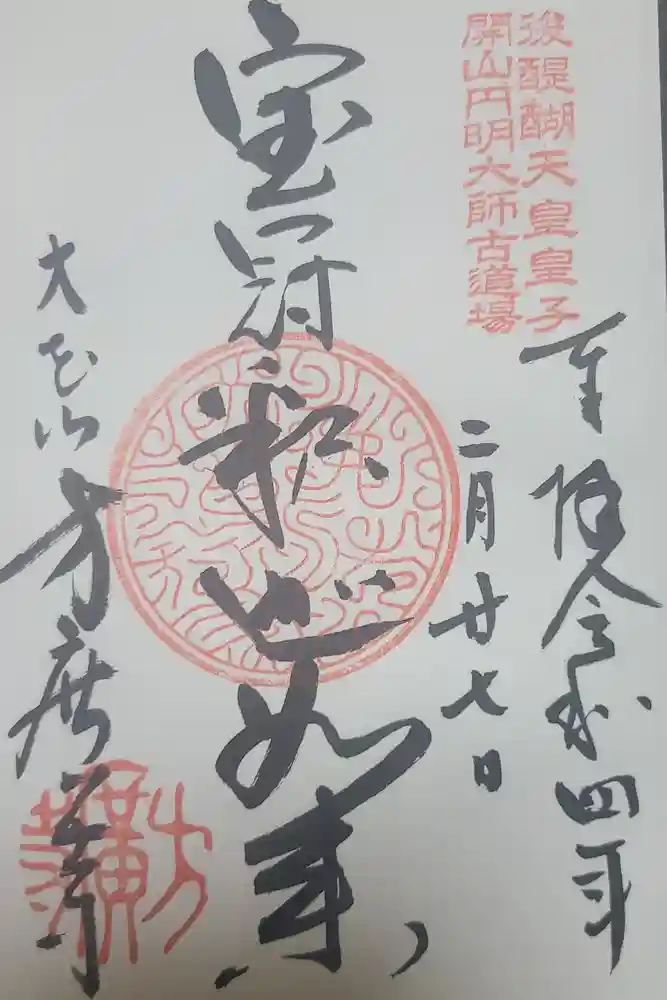 後醍醐天皇皇子
開山円明大師古道場
奉拝 令和四年
二月廿七日
宝冠釈迦如来
大本山方広寺
方広寺